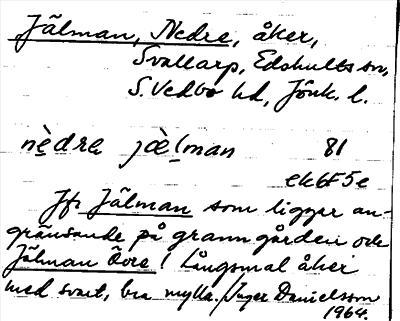 Jälman, Nedre, åker,
Svallarp, Edshults sn,
S. Vedbo hd, Jönk. l.
nèdra jæ̀lman 81
ek6F5e
Jfr Jälman som ligger an-
gränsande på granngården och
Jälman Övre! Långsmal åker
med svart, bra mylla. / Inger Danielsson
1964.